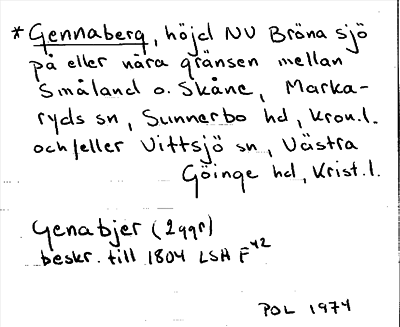 * Gennaberg, höjd NV Bröna sjö
på eller nära gränsen mellan
Småland o. Skåne, Marka-
ryds sn, Sunnerbo hd, Kron.l.
och/eller Vittsjö sn, Västra
Göinge hd, Krist.l.
Genabjer (2ggr)
beskr. till 1804 LSH F42
POL 1974